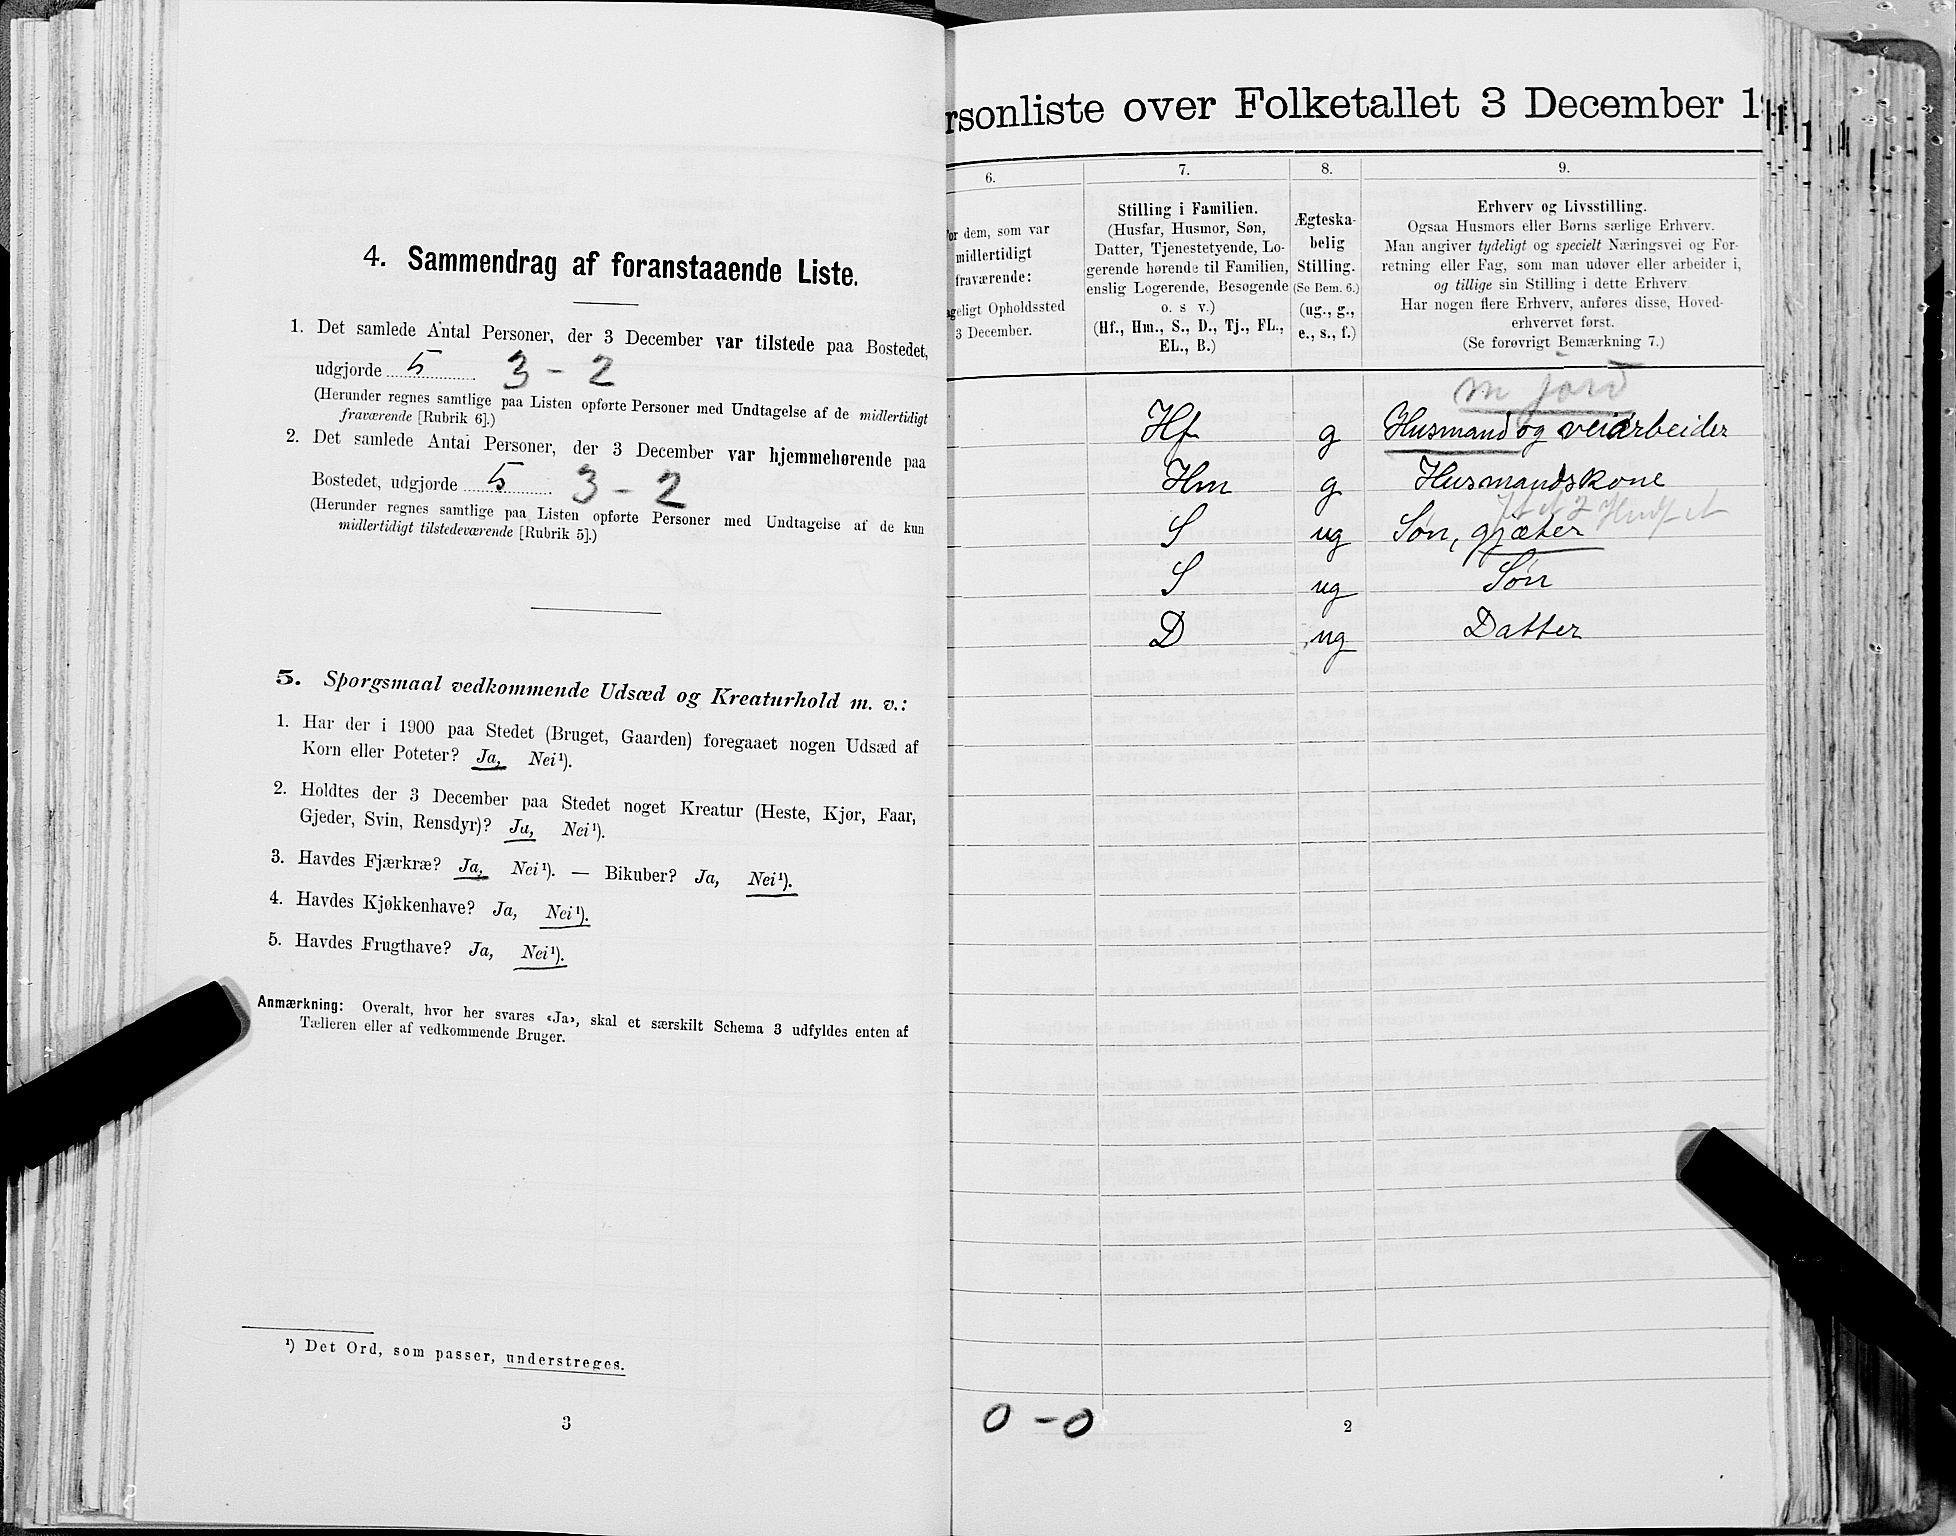 4. Sammendrag af foranstaaende Liste.
1. Det samlede Antal Personer, der 3 December var tilstede paa Bostedet,
udgjorde 5 3 - 2
(Herunder regnes samtlige paa Listen opførte Personer med Undtagelse af de midlertidigt
fraværende [Rubrik 6].)
2. Det samlede Antal Personer, der 3 December var hjemmehørende paa
Bostedet, udgjorde 5 3 - 2
(Herunder regnes samtlige paa Listen opførte Personer med Undtagelse af de kun
midlertidigt tilstedeværende [Rubrik 5].)
5. Spørgsmaal vedkommende Udsæd og Kreaturhold m. v.:
1. Har der i 1900 paa Stedet (Bruget, Gaarden) foregaaet nogen Udsæd af
Korn eller Poteter? Ja, Nei¹).
2. Holdtes der 3 December paa Stedet noget Kreatur (Heste, Kjør, Faar,
Gjeder, Svin, Rensdyr)? Ja, Nei¹).
3. Havdes Fjærkræ? Ja, Nei¹). — Bikuber? Ja, Nei¹).
4. Havdes Kjøkkenhave? Ja, Nei¹).
5. Havdes Frugthave? Ja, Nei¹).
Anmærkning: Overalt, hvor her svares «Ja», skal et særskilt Schema 3 udfyldes enten af
Tælleren eller af vedkommende Bruger.
¹) Det Ord, som passer, understreges.
3
rsonliste over Folketallet 3 December 1
6. 7. 8. 9.
or dem, som var
midlertidigt
fraværende:
geligt Opholdssted
3 December.
Stilling i Familien.
(Husfar, Husmor, Søn,
Datter, Tjenestetyende, Lo-
gerende hørende til Familien,
enslig Logerende, Besøgende
o. s v.)
(Hf., Hm., S., D., Tj., FL.,
EL., B.)
Ægteska-
belig
Stilling.
(Se Bem. 6.)
(ug., g.,
e., s., f.)
Erhverv og Livsstilling.
Ogsaa Husmors eller Børns særlige Erhverv.
Man angiver tydeligt og specielt Næringsvei og For-
retning eller Fag, som man udøver eller arbeider i,
og tillige sin Stilling i dette Erhverv
Har nogen flere Erhverv, anføres disse, Hoved-
erhvervet først.
(Se forøvrigt Bemærkning 7.)
m jord
Hf g Husmand og veiarbeider
Hm g Husmandskone
S ug Søn, gjæter
S ug Søn
D ug Datter
0 - 0
2